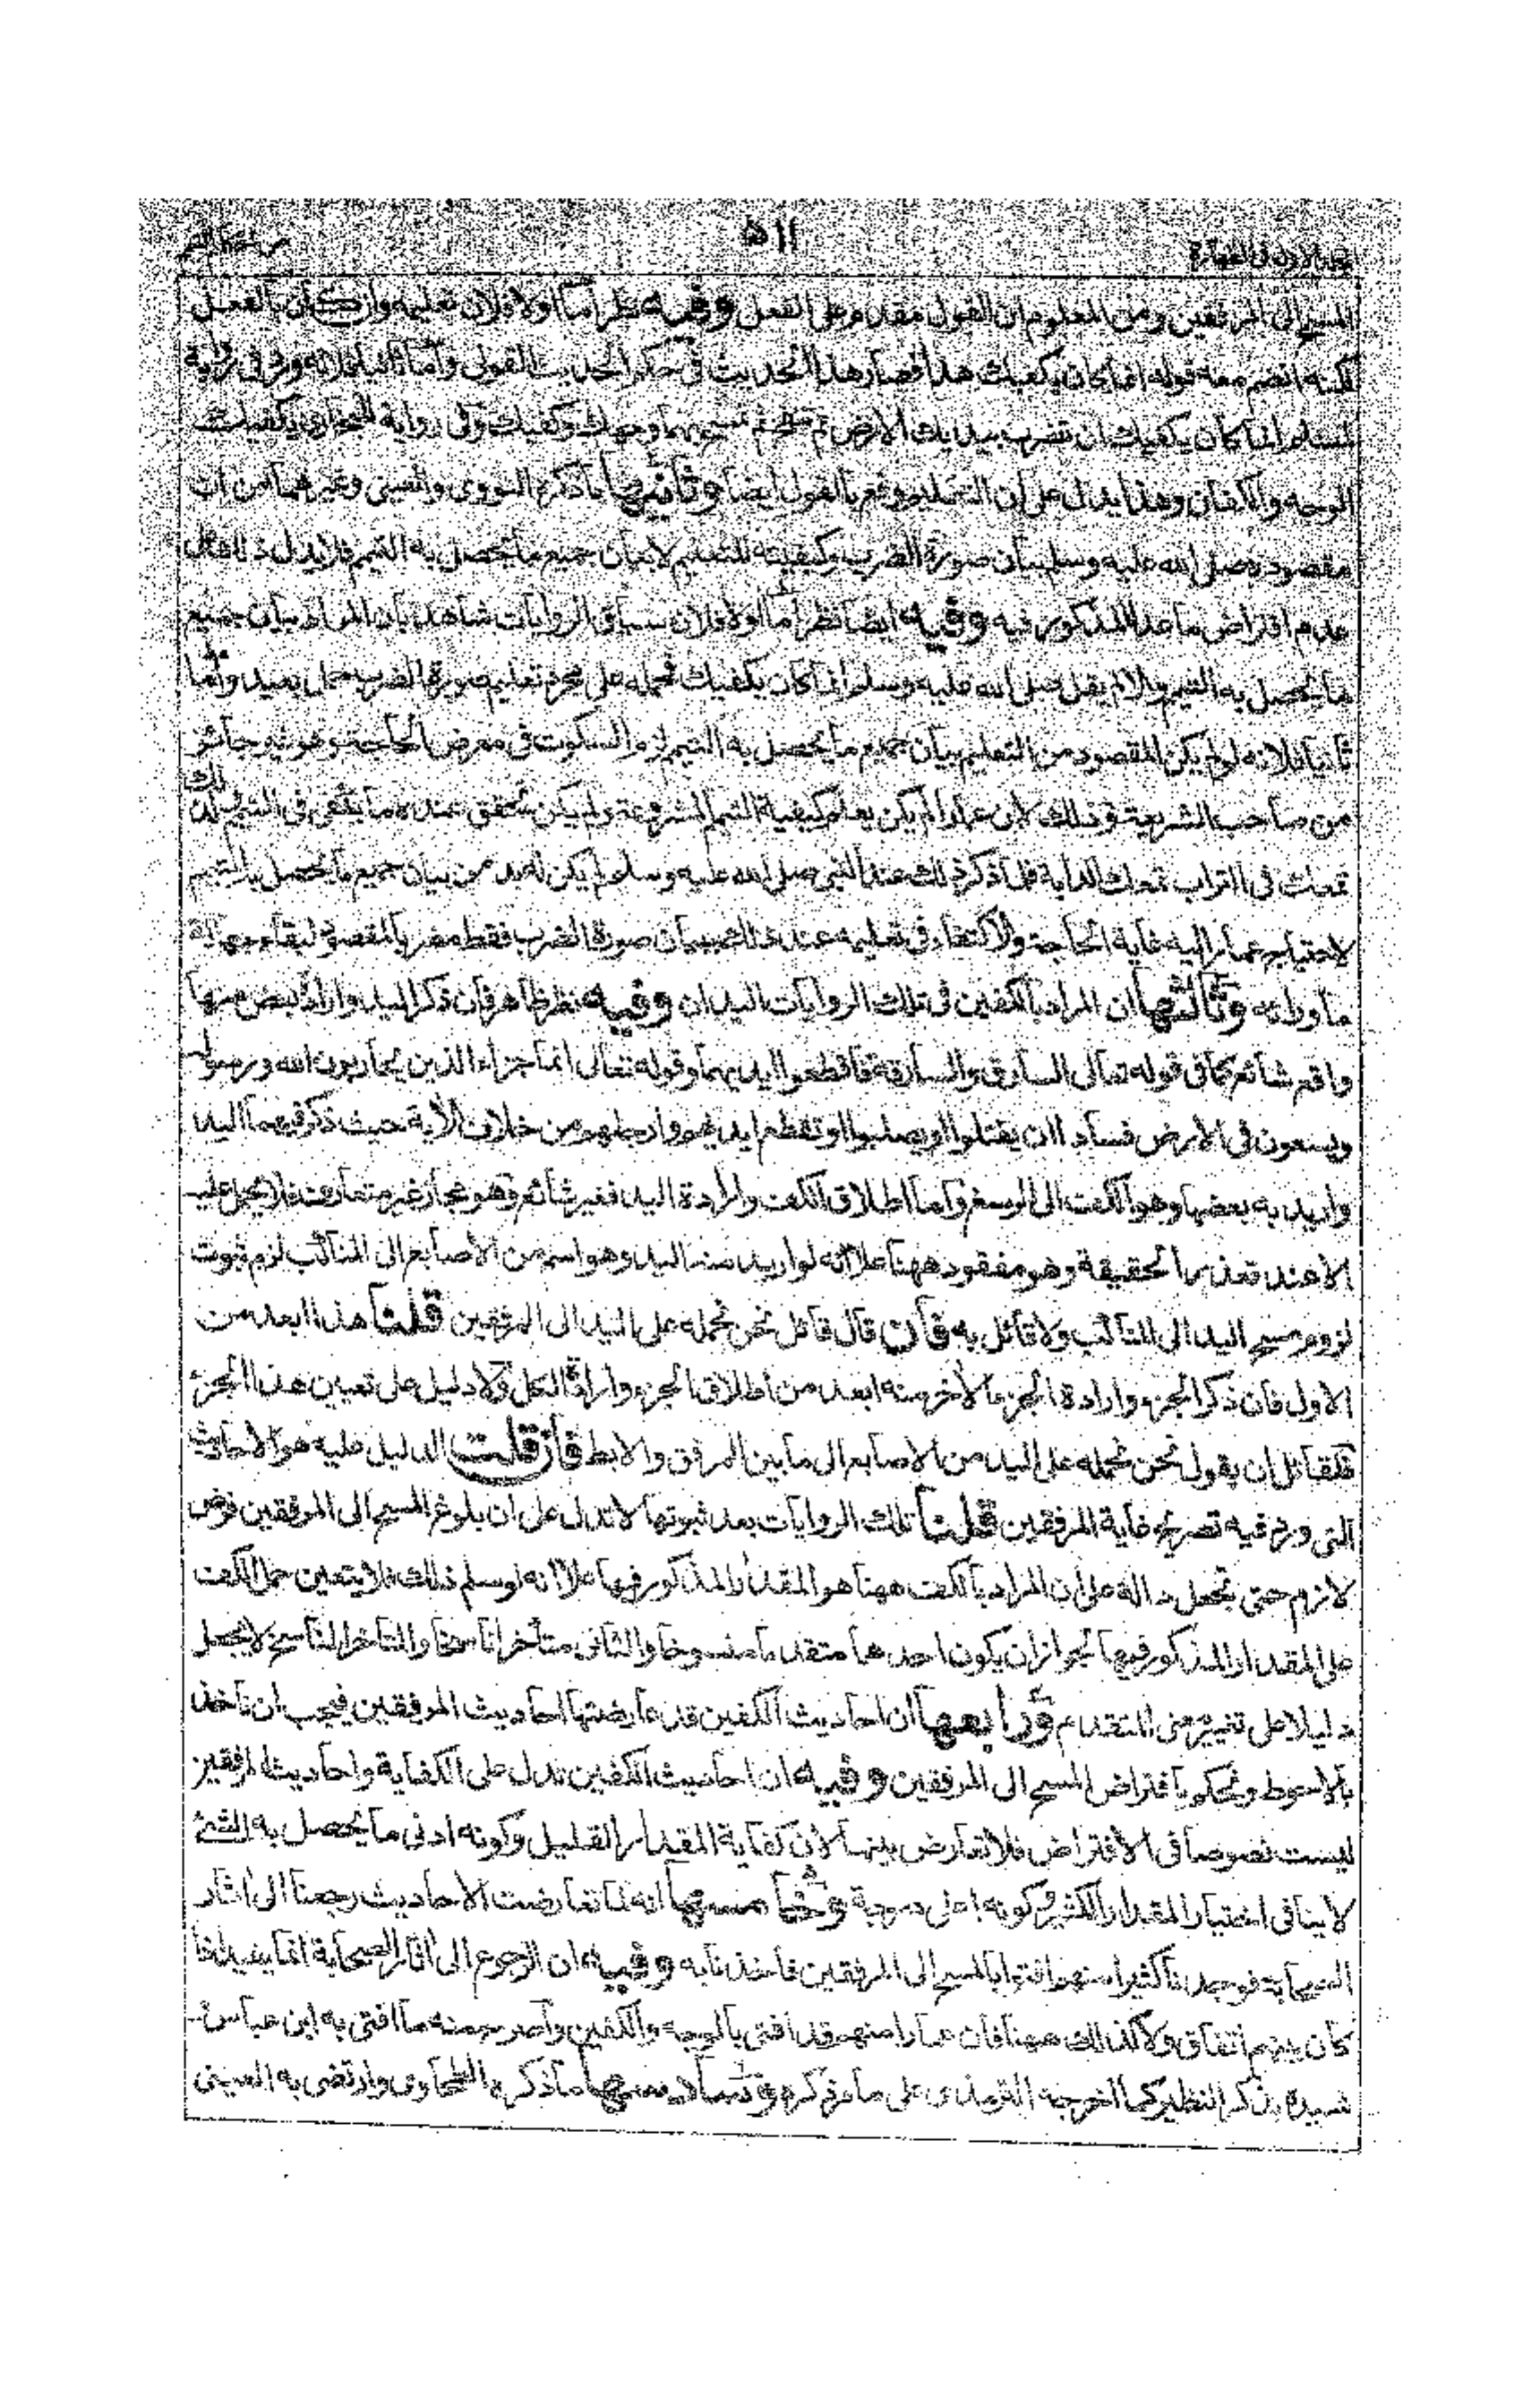 ٥١١
المسح الى المرفقين ومن المعلوم ان القول مقدم على الفعل وفيه نظر اما اولا فلان تعليمه وان كان بالفعل
لكنه انضم معه قوله انما كان يكفيك هذا فصار هذا الحديث فى حكم الحديث القولى واما ثانيا فلانه ورد فى رواية
لمسلم انما كان يكفيك ان تضرب بيديك الارض ثم تنفخ ثم تمسح بهما وجهك وكفيك وفى رواية للبخارى يكفيك
الوجه والكفان وهذا يدل على ان التعليم وقع بالقول ايضا وثانيها ما ذكره النووى والعينى وغيرهما من ان
مقصوده صلى الله عليه وسلم بيان صورة الضرب وكيفيته للتعليم لا بيان جميع ما يحصل به التيمم فلا يدل ذلك على
عدم افتراض ما عدا المذكور فيه وفيه ايضا نظر اما اولا فلان سياق الروايات شاهد بان المراد بيان جميع
ما يحصل به التيمم والا لم يقل صلى الله عليه وسلم انما كان يكفيك فحمله على مجرد تعليم صورة الضرب حمل بعيد واما
ثانيا فلانه لو لم يكن المقصود من التعليم بيان جميع ما يحصل به التيمم لزم السكوت فى معرض الحاجة وهو غير جائز
من صاحب الشريعة وذلك لان عمارا لم يكن يعلم كيفية التيمم المشروعة ولم يكن تحقق عنده ما يكفى فى التيمم ولذلك
تمعك فى التراب تمعك الدابة فلما ذكر ذلك عند النبى صلى الله عليه وسلم لم يكن له بد من بيان جميع ما يحصل به التيمم
لاحتياج عمار اليه غاية الحاجة والاكتفاء فى تعليمه عند ذلك ببيان صورة الضرب فقط مضر بالمقصود لبقاء جهالة
ما وراءه وثالثها ان المراد بالكفين فى تلك الروايات اليدان وفيه نظر ظاهر فان ذكر اليد وارادة بعض منها
واقع شائع كما فى قوله تعالى السارق والسارقة فاقطعوا ايديهما وقوله تعالى انما جزاء الذين يحاربون الله ورسوله
ويسعون فى الارض فسادا ان يقتلوا او يصلبوا او تقطع ايديهم وارجلهم من خلاف الآية حيث ذكر فيهما اليد
واريد به بعضها وهو الكف الى الرسغ واما اطلاق الكف وارادة اليد فغير شائع وهو مجاز غير متعارف فلا يحمل عليه
الا عند تعذر الحقيقة وهو مفقود ههنا على انه لو اريد منه اليد وهو اسم من الاصابع الى المناكب لزم ثبوت
لزوم مسح اليد الى المناكب ولا قائل به فان قال قائل نحن نحمله على اليد الى المرفقين قلنا هذا ابعد من
الاول فان ذكر الجزء وارادة الجزء الآخر منه ابعد من اطلاق الجزء وارادة الكل ولا دليل على تعيين هذا الجزء
فلقائل ان يقول نحن نحمله على اليد من الاصابع الى ما بين المرفق والابط فان قلت الدليل عليه هو الاحاديث
التى ورد فيه تصريح غاية المرفقين قلنا تلك الروايات بعد ثبوتها لا تدل على ان بلوغ المسح الى المرفقين فرض
لازم حتى تجعل دالة على ان المراد بالكف ههنا هو المقدار المذكور فيها على انه لو سلم ذلك فلا يتعين حمل الكف
على المقدار المذكور فيها لجواز ان يكون احدهما متقدما منسوخا والثانى متأخرا ناسخا والمتأخر الناسخ لا يجعل
دليلا على تغيير معنى المتقدم ورابعها ان احاديث الكفين قد عارضتها احاديث المرفقين فيجب ان ناخذ
بالاحوط ونحكم بافتراض المسح الى المرفقين وفيه ان احاديث الكفين تدل على الكفاية واحاديث المرفقين
ليست نصوصا فى الافتراض فلا تعارض بينها لان كفاية المقدار القليل وكونه ادنى ما يحصل به الشئ
لا ينافى اختيار المقدار الكثير وكونه اعلى درجة وخامسها انه لما تعارضت الاحاديث رجعنا الى اثار
الصحابة فوجدنا كثيرا منهم افتوا بالمسح الى المرفقين فاخذنا به وفيه ان الرجوع الى آثار الصحابة انما يفيد اذا
كان بينهم اتفاق ولا كذلك ههنا فان عمارا منهم قد افتى بالوجه والكفين واصرح منه ما افتى به ابن عباس
شيده بذكر النظير كما اخرجه الترمذى على ما مر ذكره وسادسها ما ذكره الطحاوى وارتضى به العينى